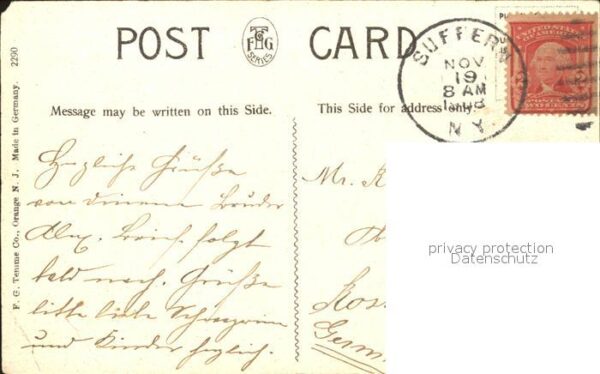 POST CARD
T
F C G
SERIES
SUFFERN
NOV
19
8 AM
1908
N.Y.
Message may be written on this Side.
This Side for address only.
Herzliche Grüße
von deinem Bruder
Alex. Brief folgt
bald nach. Grüße
bitte liebe Schwägerin
und Kinder herzlich.
Mr. K
Ros
Germ
privacy protection
Datenschutz
F. G. Temme Co., Orange N. J. Made in Germany. 2290